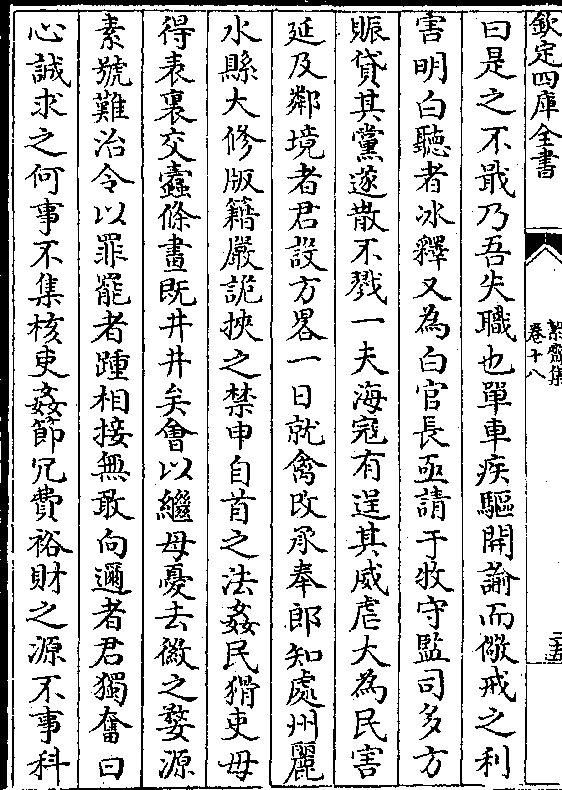 欽定四庫全書
絜齋集
卷十八
二五
曰是之不戢乃吾失職也單車疾驅開諭而儆戒之利
害明白聽者冰釋又為白官長亟請于牧守監司多方
賑貸其黨遂散不戮一夫海寇有逞其威虐大為民害
延及鄰境者君設方畧一日就禽改承奉郎知處州麗
水縣大修版籍嚴詭挾之禁申自首之法姦民猾吏毋
得表裏交蠹條畫既井井矣會以繼母憂去徽之婺源
素號難治令以罪罷者踵相接無敢向邇者君獨奮曰
心誠求之何事不集核吏姦節冗費裕財之源不事科